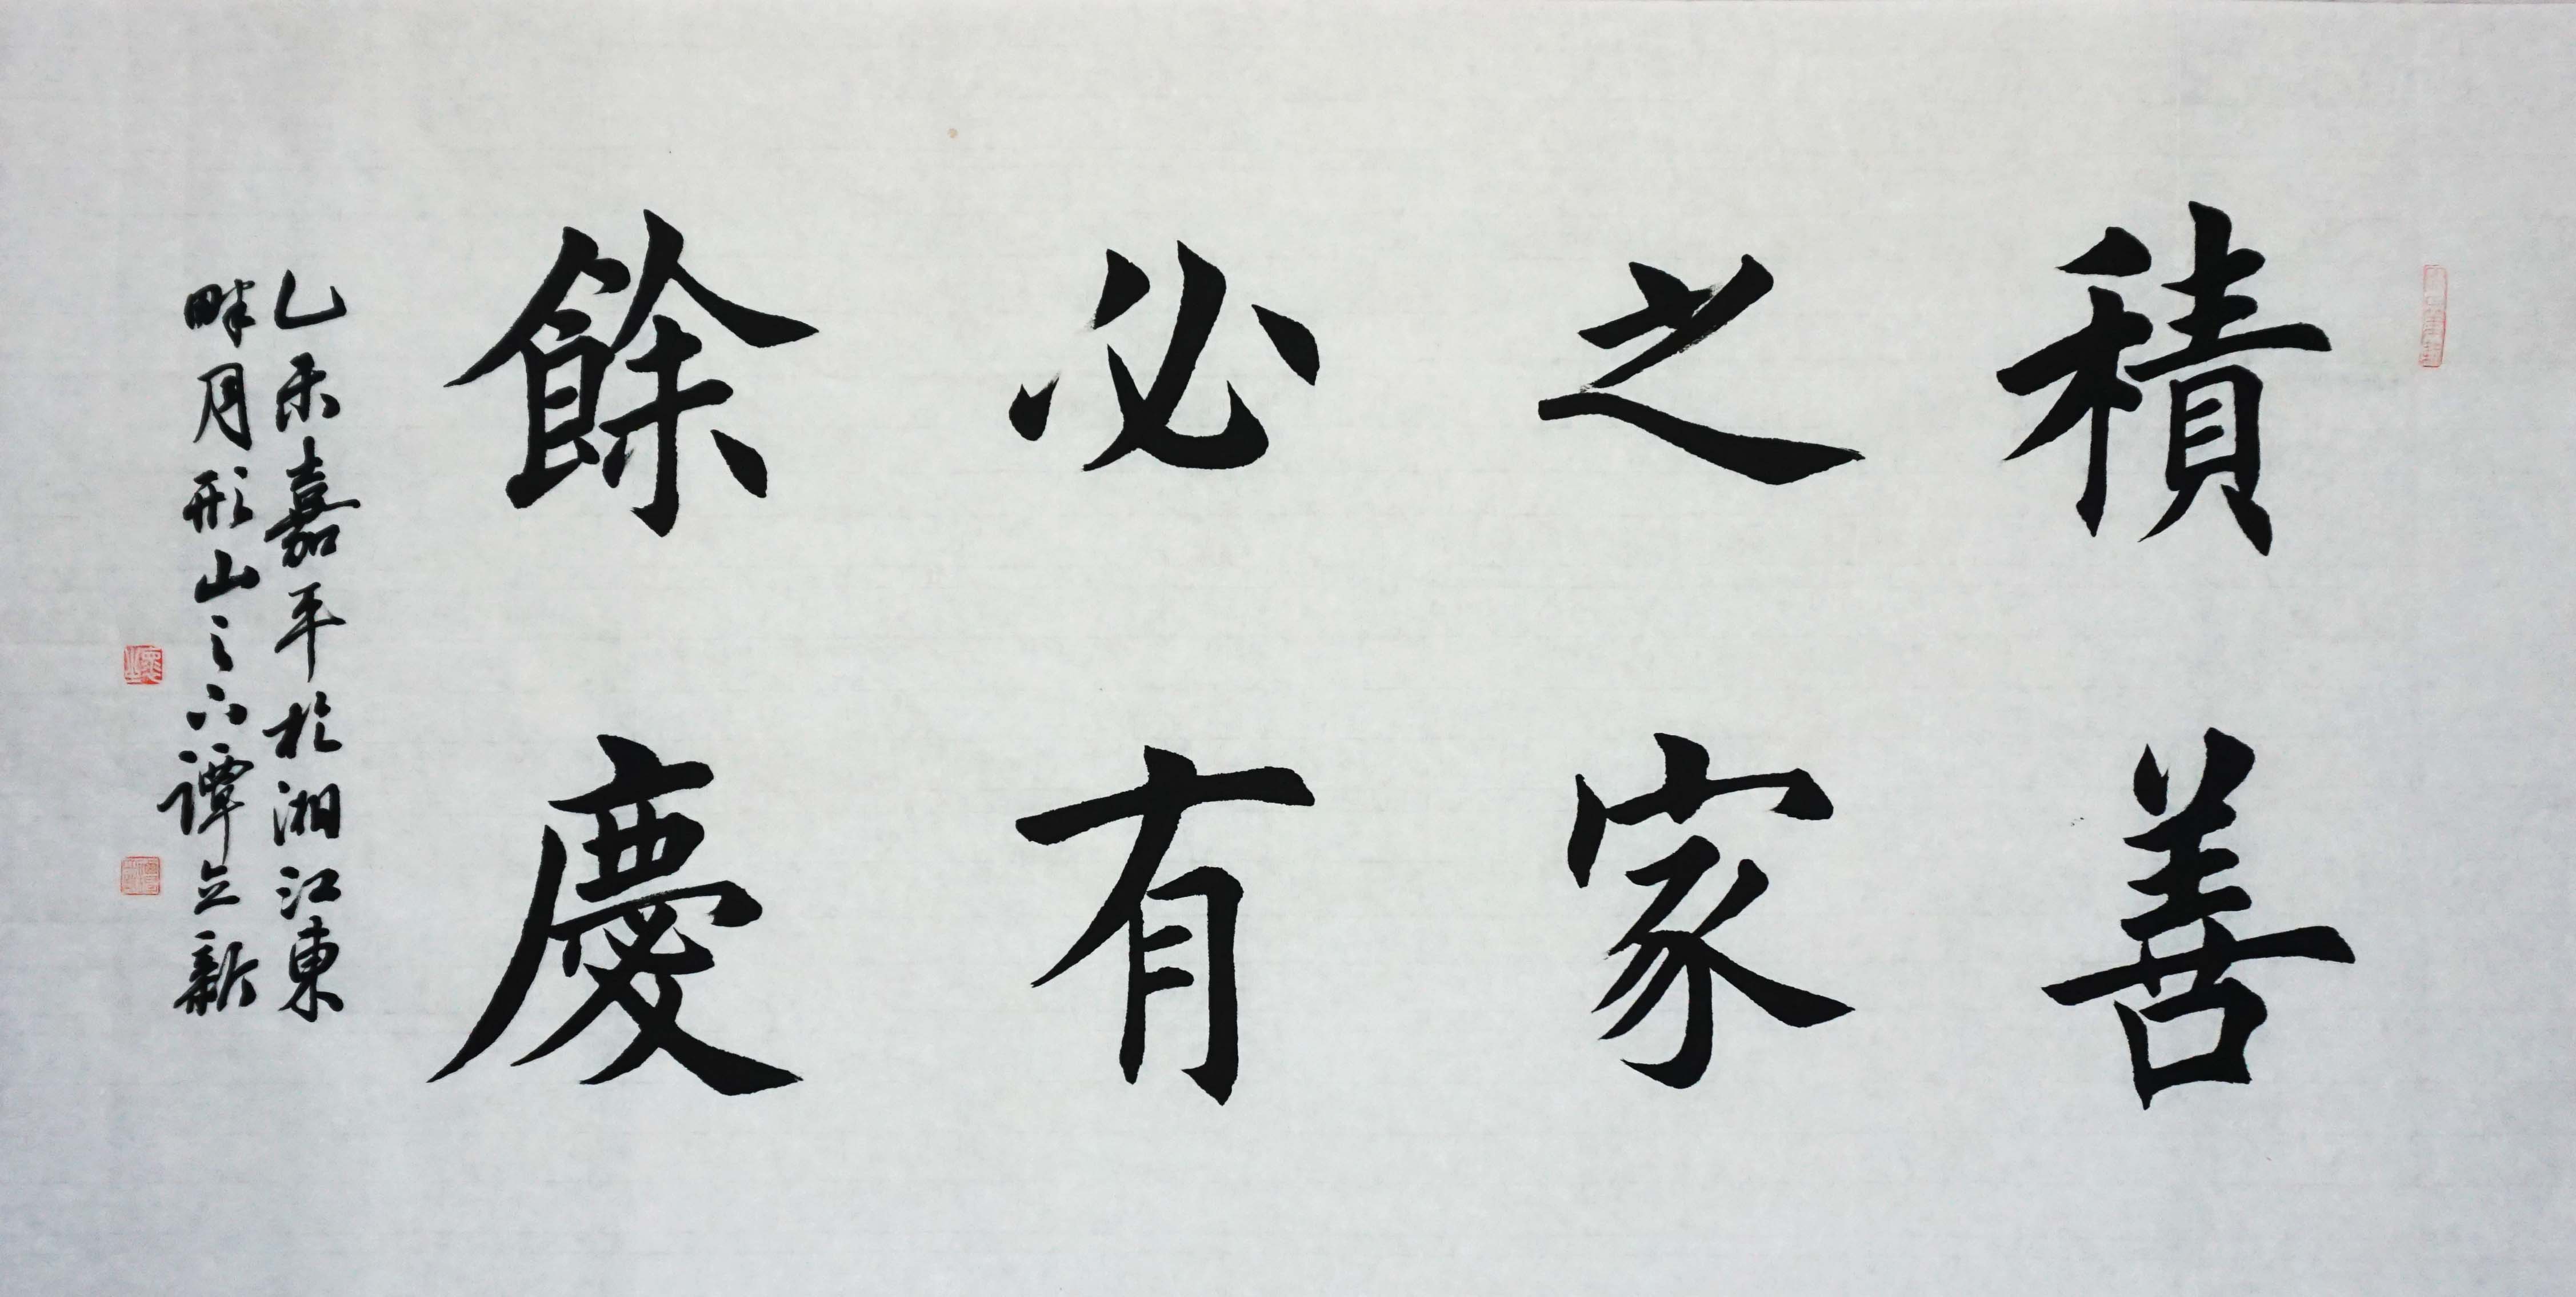 積善
之家
必有
餘慶
乙未嘉平於湘江東
畔月形山之下譚立新